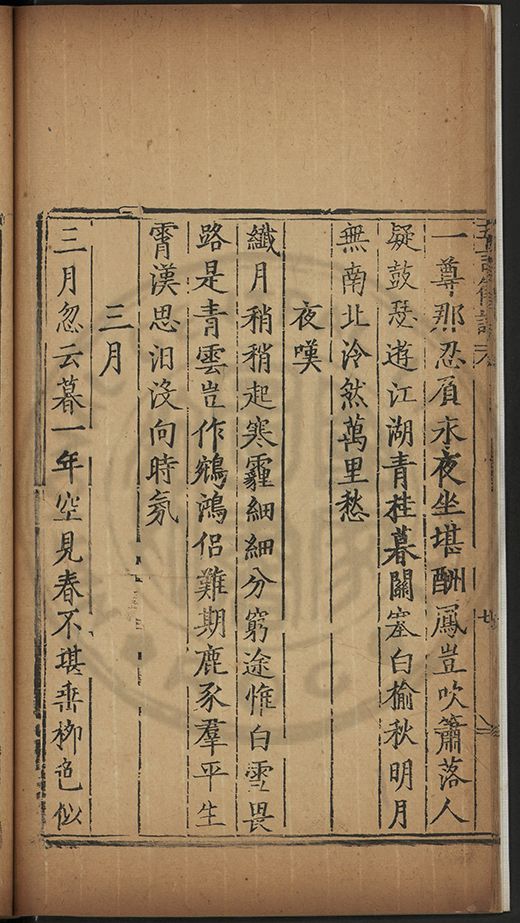 一尊那忍負永夜坐堪酬鳳豈吹簫落人
疑鼓瑟遊江湖青桂暮關塞白榆秋明月
無南北泠然萬里愁
夜嘆
纖月稍稍起寒霾細細分窮途惟白雪畏
路是青雲豈作鵷鴻侶難期鹿豕羣平生
霄漢思汩沒向時氛
三月
三月忽云暮一年空見春不堪垂柳色似